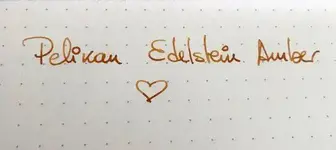 Pelikan Edelstein Amber